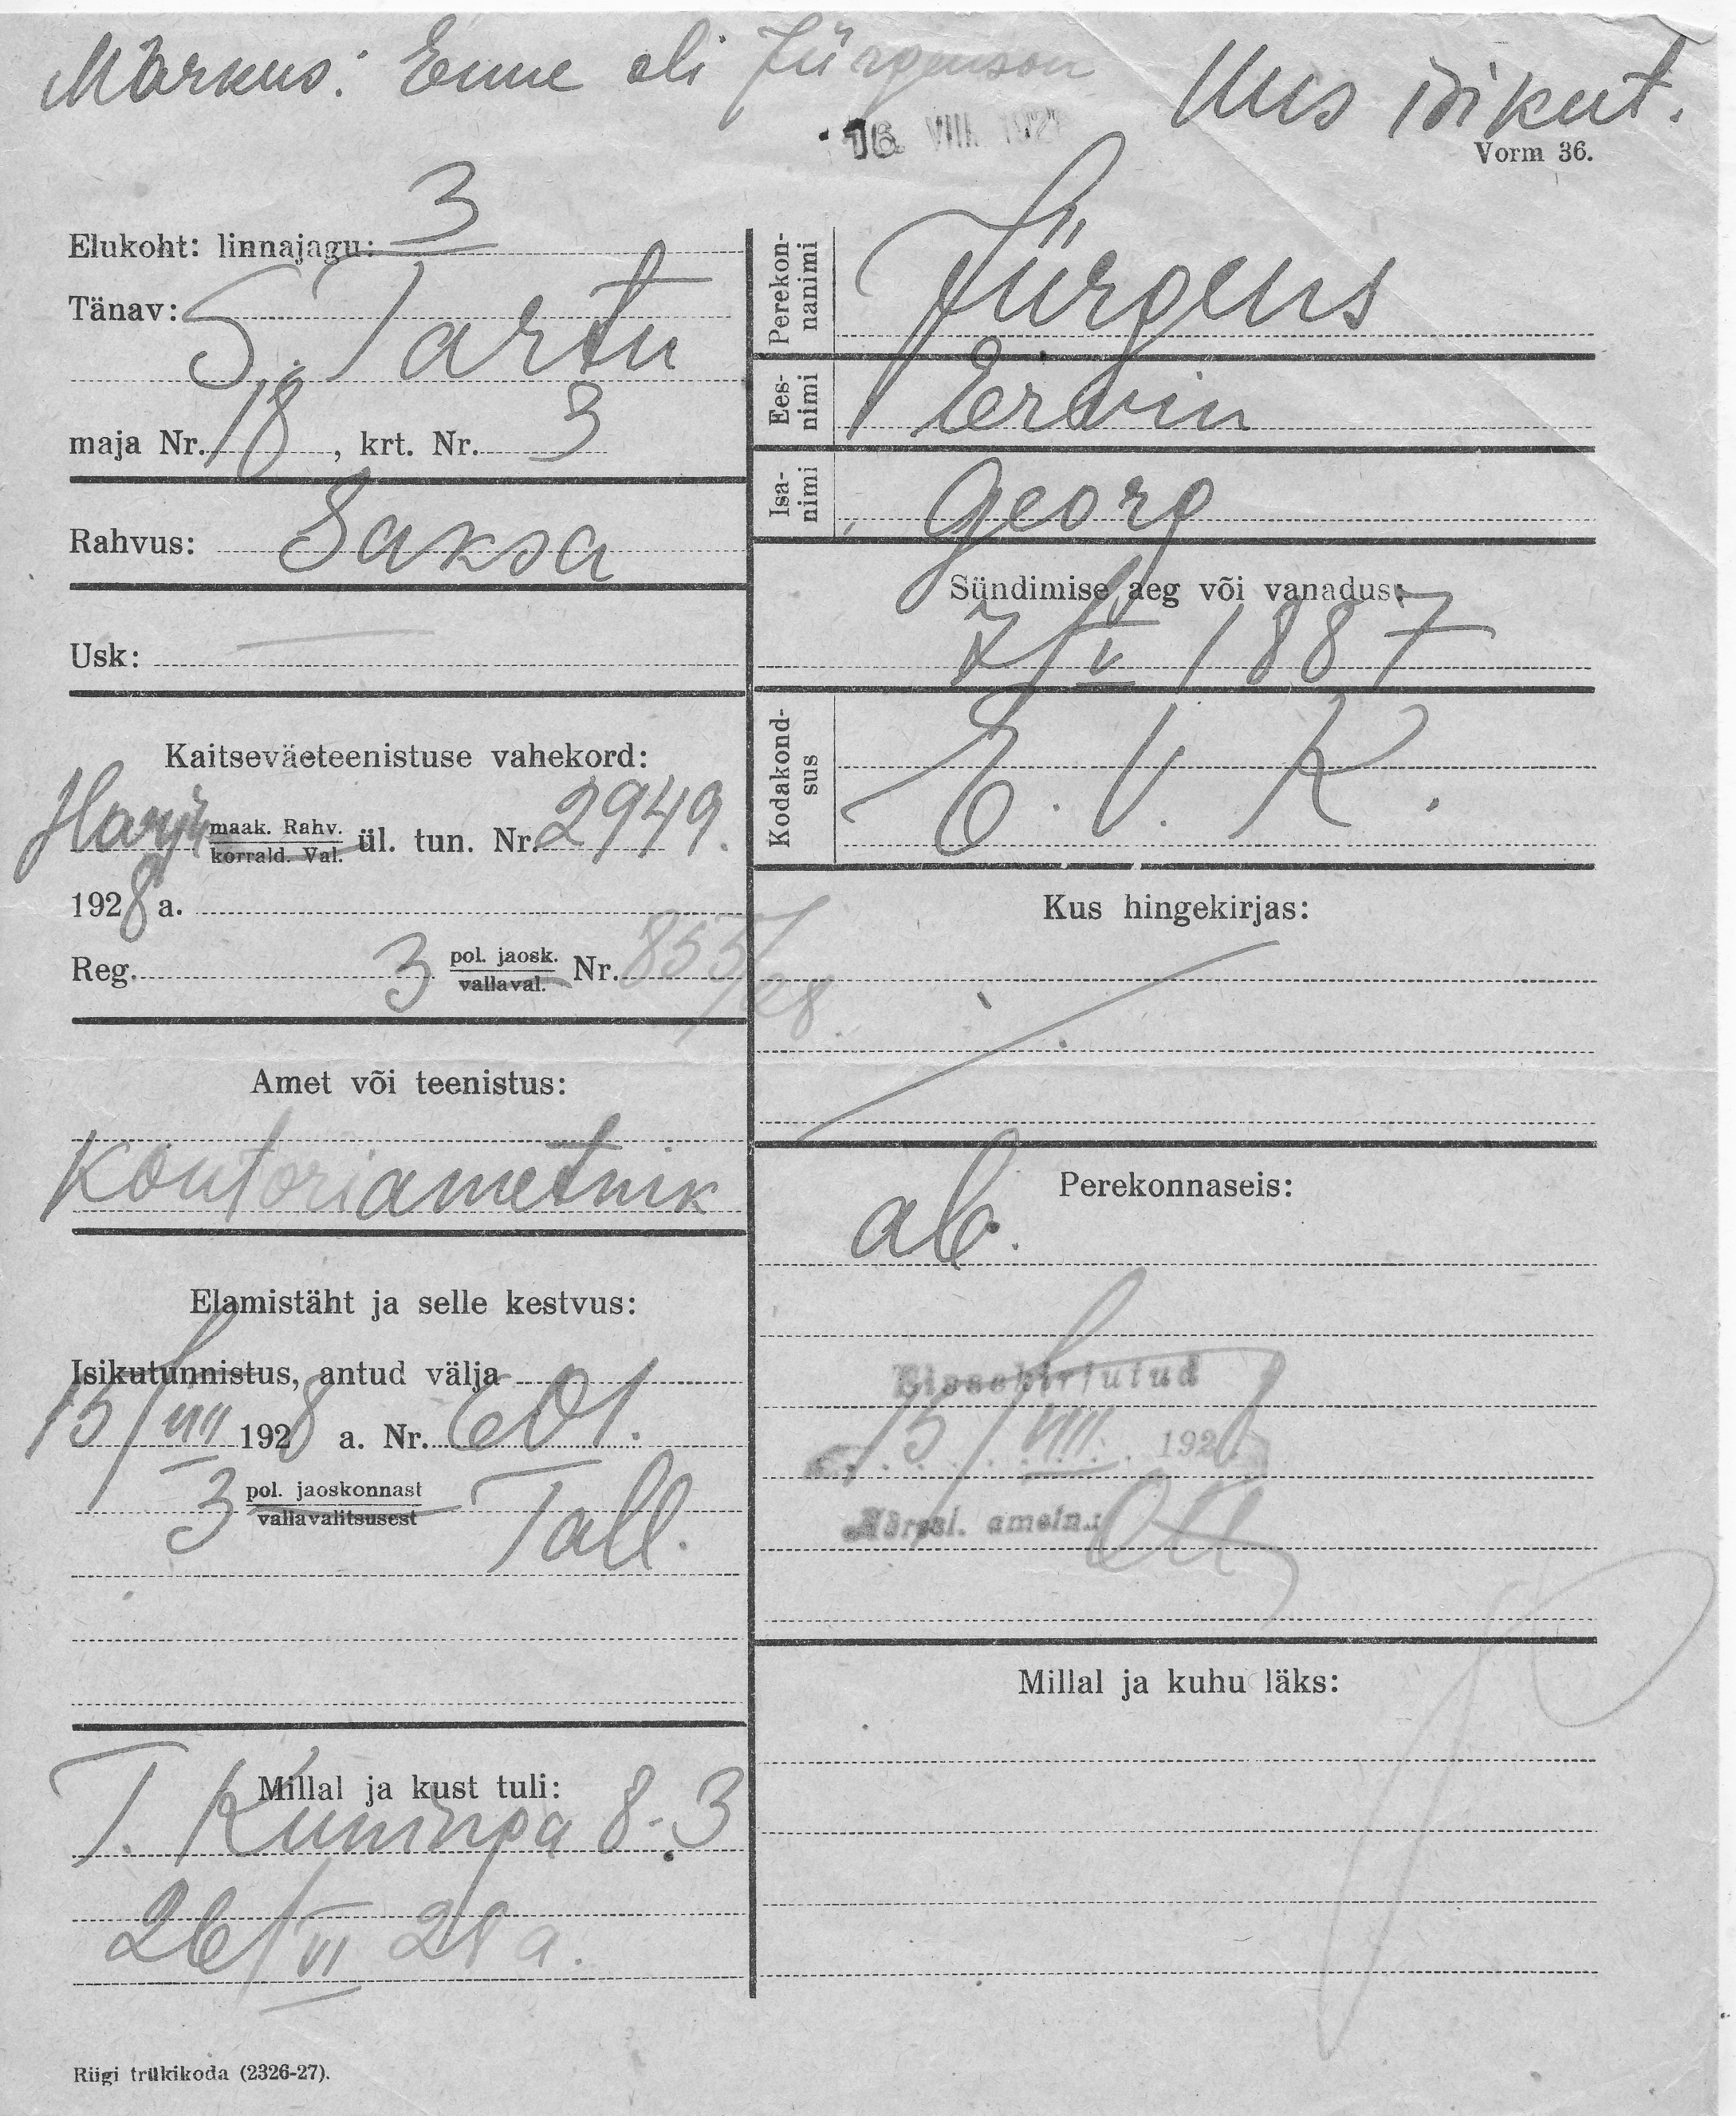 Märkus: Enne oli Jürgenson
Uus isikut.
16. VIII 192
Vorm 36.
Elukoht: linnajagu: 3
Tänav: S. Tartu
maja Nr. 18, krt. Nr. 3
Rahvus: Saksa
Usk:
Kaitseväeteenistuse vahekord:
Harju maak. Rahv. ül. tun. Nr. 2949.
korrald. Val.
1928 a.
Reg. 3 pol. jaosk. Nr. 855/28.
vallaval.
Amet või teenistus:
Kontoriametnik
Elamistäht ja selle kestvus:
Isikutunnistus, antud välja
15/VIII 1928 a. Nr. 601.
3 pol. jaoskonnast Tall.
vallavalitsusest
Millal ja kust tuli:
T. Kuninga 8-3
26/VI 28 a.
Riigi trükikoda (2326-27).
Perekonnanimi
Jürgens
Eesnimi
Erwin
Isanimi
Georg
Sündimise aeg või vanadus:
7/V 1887
Kodakondsus
E. V. K.
Kus hingekirjas:
Perekonnaseis:
ab.
Sissekirjutud
15/VIII 1928
Märgul. ametn.:
Millal ja kuhu läks: